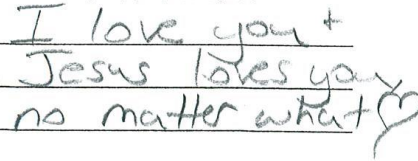 I love you +
Jesus loves you
no matter what ♡